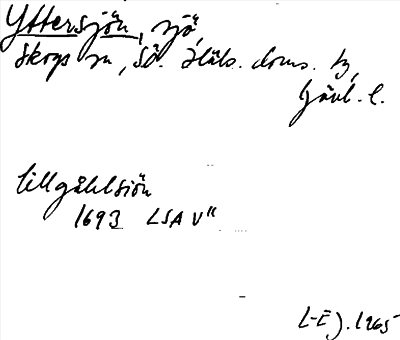 Yttersjön, sjö,
Skogs sn, Sö. Häls. doms. tg,
Gävl. l.
lillgåhlsiön
1693 LSA V"
L-E J. 1965